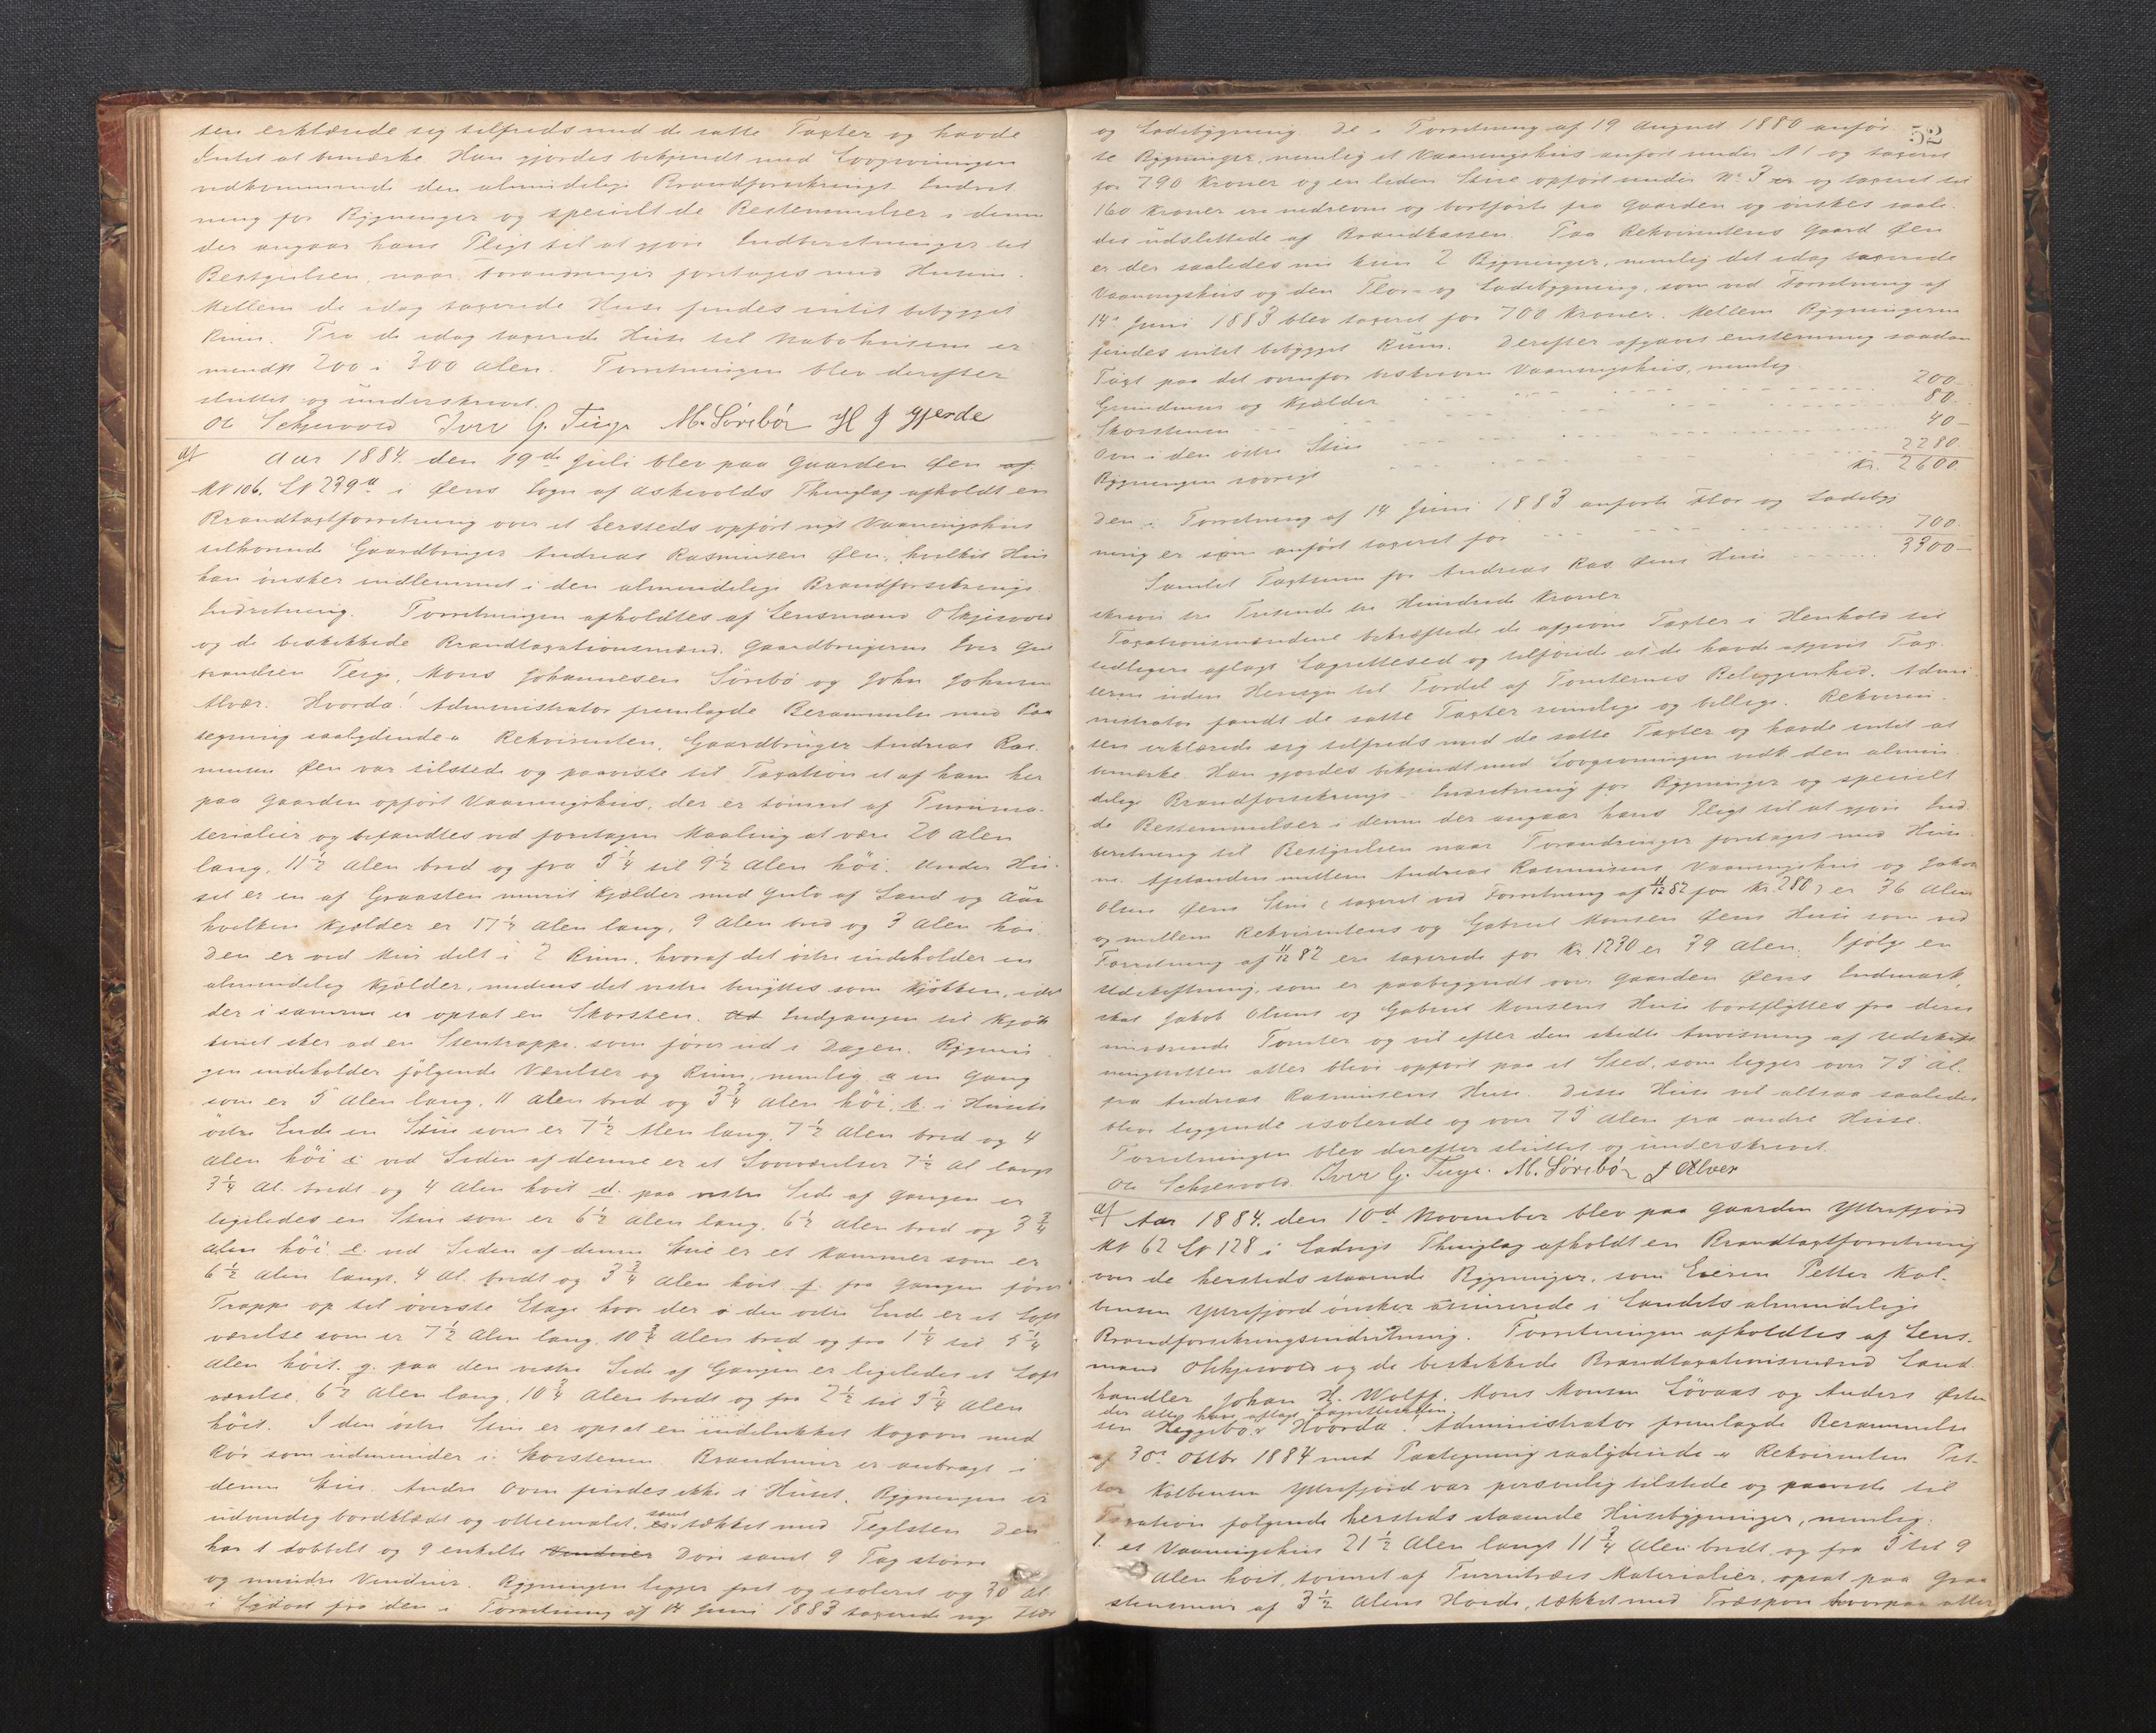 sen erklærede sig tilfreds med de satte Taxter og havde
Intet at bemærke. Han gjordes bekjendt med Lovgivningen
vedkommende den almindelige Brandforsikrings Indret
ning for Bygninger og specielt de Bestemmelser i denne
der angaar hans Pligt til at gjøre Indberetninger til
Bestyrelsen, naar Forandringer foretages med Husene.
Mellem de idag taxerede Huse findes intet bebygget
Rum. Fra de idag taxerede Huse til Nabohusene er
mindst 200 á 300 Alen. Forretningen blev derefter
sluttet og underskrevet.
Ol Schjervold Iver G. Teige M. Sørebø H J Gjerde
Aar 1884. den 19de Juli blev paa Gaarden Øen af
MN 106. LN 239a i Øens Sogn af Askevolds Thinglag afholdt en
Brandtaxtforretning over et hersteds opført nyt Vaaningshus
tilhørende Gaardbruger Andreas Rasmusen Øen, hvilket Hus
han ønsker indlemmet i den almindelige Brandforsikrings
Indretning. Forretningen afholdtes af Lensmand OSchjervold
og de beskikkede Brandtaxationsmænd. Gaardbrugerne Iver Gul
brandsen Teige, Mons Johannesen Sørebø og John Johnsen
Alvær. Hvorda! Administrator fremlagde Berammelse med Paa
tegning saalydende " Rekvirenten, Gaardbruger Andreas Ras
musen Øen var tilstede og paaviste til Taxation et af ham her
paa Gaarden opført Vaaningshus, der er tømret af Furuma-
terialier og befandtes ved foretagen Maaling at være 20 Alen
lang, 11 1/2 Alen bred og fra 5 1/4 til 9 1/2 Alen höi. Under Hu-
set er en af Graasten muret Kjælder med Gulv af Sand og Aur
hvilken Kjælder er 17 1/2 Alen lang, 9 Alen bred og 3 Alen höi
Den er ved Mur delt i 2 Rum, hvoraf det östre indeholder en
almindelig Kjælder, medens det vestre benyttes som Kjökken, idet
der i samme er opsat en Skorsten. Indgangen til Kjök
kenet sker ad en Stentrappe som fører ud i Dagen. Bygnin
gen indeholder følgende Værelser og Rum, nemlig a en Gang
som er 5 Alen lang, 11 Alen bred og 3 3/4 Alen höi, b. i Husets
östre Ende en Stue som er 7 1/2 Alen lang, 7 1/2 Alen bred og 4
Alen höi c ved Siden af denne er et Soveværelse 7 1/2 Al langt
3 1/4 Al. bredt og 4 Alen höit d. paa vestre Side af Gangen er
ligeledes en Stue som er 6 1/2 Alen lang, 6 1/2 Alen bred og 3 3/4
Alen höi e. ved Siden af denne Stue er et Kammer som er
6 1/2 Alen langt. 4 Al. bredt og 3 3/4 Alen höit f. fra Gangen fører
Trappe op til överste Etage hvor der i den östre Ende er et Loft
værelse som er 7 1/2 Alen lang, 10 3/4 Alen bred og fra 1 1/4 til 5 1/4
Alen höit. g. paa den vestre Side af Gangen er ligeledes et Loft
værelse, 6 1/2 Alen lang, 10 3/4 Alen bredt og fra 2 1/2 til 5 1/4 Alen
höit. I den östre Stue er opsat en indelukket Kogovn med
Rör som udmunder i Skorstenen. Brandmur er anbragt i
denne Stue. Andre Ovne findes ikke i Huset. Bygningen er
udvendig bordklædt og oliemalet, samt tækket med Teglsten Den
har 1 dobbelt og 9 enkelte Vinduer Döre samt 9 Fag större
og mindre Vinduer. Bygningen ligger frit og isoleret og 30 Al.
i Sydost fra den i Forretning af 14 Juni 1883 taxerede ny
52
og Ladebygning. De i Forretning af 19 August 1880 anför
te Bygninger, nemlig et Vaaningshus anført under N 1 og taxeret
for 790 Kroner og en liden Stue opført under No 3 og taxeret til
160 Kroner ere nedrevne og bortførte fra Gaarden og ønskes saale-
des udslettede af Brandkassen. Paa Rekvirentens Gaard Øen
er der saaledes nu kun 2 Bygninger, nemlig det idag taxerede
Vaaningshus og den Flor- og Ladebygning, som ved Forretning af
14de Juni 1883 blev taxeret for 700 Kroner. Mellem Bygningerne
findes intet bebygget Rum. Derefter afgaves enstemmig saadan
Taxt paa det ovenfor beskrevne Vaaningshus, nemlig
Grundmur og Kjælder 200
Skorstenen 80
Ovn i den östre Stue 40
Bygningen iøvrigt 2280
Kr. 2600
Den i Forretning af 14 Juni 1883 anførte Flor og Ladebyg
ning er som anført taxeret for 700
Samlet Taxtsum for Andreas Ras Øens Huse 3300
skriver tre Tusende tre Hundrede Kroner
Taxationsmændene bekræftede de afgivne Taxter i Henhold til
tidligere aflagt Lagrettesed og tilføiede at de havde afgivet Tax
terne uden Hensyn til Fordel af Tomternes Beliggenhed. Admi
nistrator fandt de satte Taxter rimelige og billige. Rekviren-
ten erklærede sig tilfreds med de satte Taxter og havde intet at
bemærke. Han gjordes bekjendt med Lovgivningen vedk den almin
delige Brandforsikrings-Indretning for Bygninger og specielt
de Bestemmelser i denne der angaar hans Pligt til at gjøre Ind
beretning til Bestyrelsen naar Forandringer foretages med Huse
ne. Afstanden mellem Andreas Rasmusens Vaaningshus og Jakob
Olsen Øens Stue (taxeret ved Forretning af 11/12 82 for Kr. 280) er 36 Alen
og mellem Rekvirentens og Gabriel Monsen Øens Huse som ved
Forretning af 11/12 82 ere taxerede for Kr 1230 er 39 Alen. Ifølge en
Udskiftning, som er paabegyndt over Gaarden Øens Indmark,
skal Jakob Olsens og Gabriel Monsens Huse bortflyttes fra deres
nuværende Tomter og vil efter den skedte Anvisning af Udskift
ningsretten atter blive opført paa et Sted, som ligger over 75 Al.
fra Andreas Rasmusens Huse. Disse Huse vil altsaa saaledes
blive liggende isolerede og over 75 Alen fra andre Huse.
Forretningen blev derefter sluttet og underskrevet.
Ol Schjervold. Iver G. Teige. M. Sørebø J Alver
Aar 1884. den 10de November blev paa Gaarden Yttrefjord
MN 62 LN 128 i Ladvigs Thinglag afholdt en Brandtaxtforretning
over de hersteds staaende Bygninger, som Eieren Petter Kol-
bensen Yttrefjord ønsker assurerede i Landets almindelige
Brandforsikringsindretning. Forretningen afholdtes af Lens-
mand OSchjervold og de beskikkede Brandtaxationsmænd Land
handler Johan H. Wolff. Mons Monsen Lövaas og Anders Østen
der alle have aflagt Lagretteseden.
sen Haggebø. Hvorda! Administrator fremlagde Berammelse
af 30te Oktbr 1884 med Paategning saalydende " Rekvirenten Pet-
ter Kolbensen Yttrefjord var personlig tilstede og paaviste til
Taxation følgende hersteds staaende Husebygninger, nemlig:
1. et Vaaningshus 21 1/2 Alen langt 11 3/4 Alen bredt og fra 5 til 9
Alen höit, tömret af Furutræes Materialier, opsat paa Graa
stensmur af 3 1/2 Alens Höide, tækket med Træspon hvorpaa atter